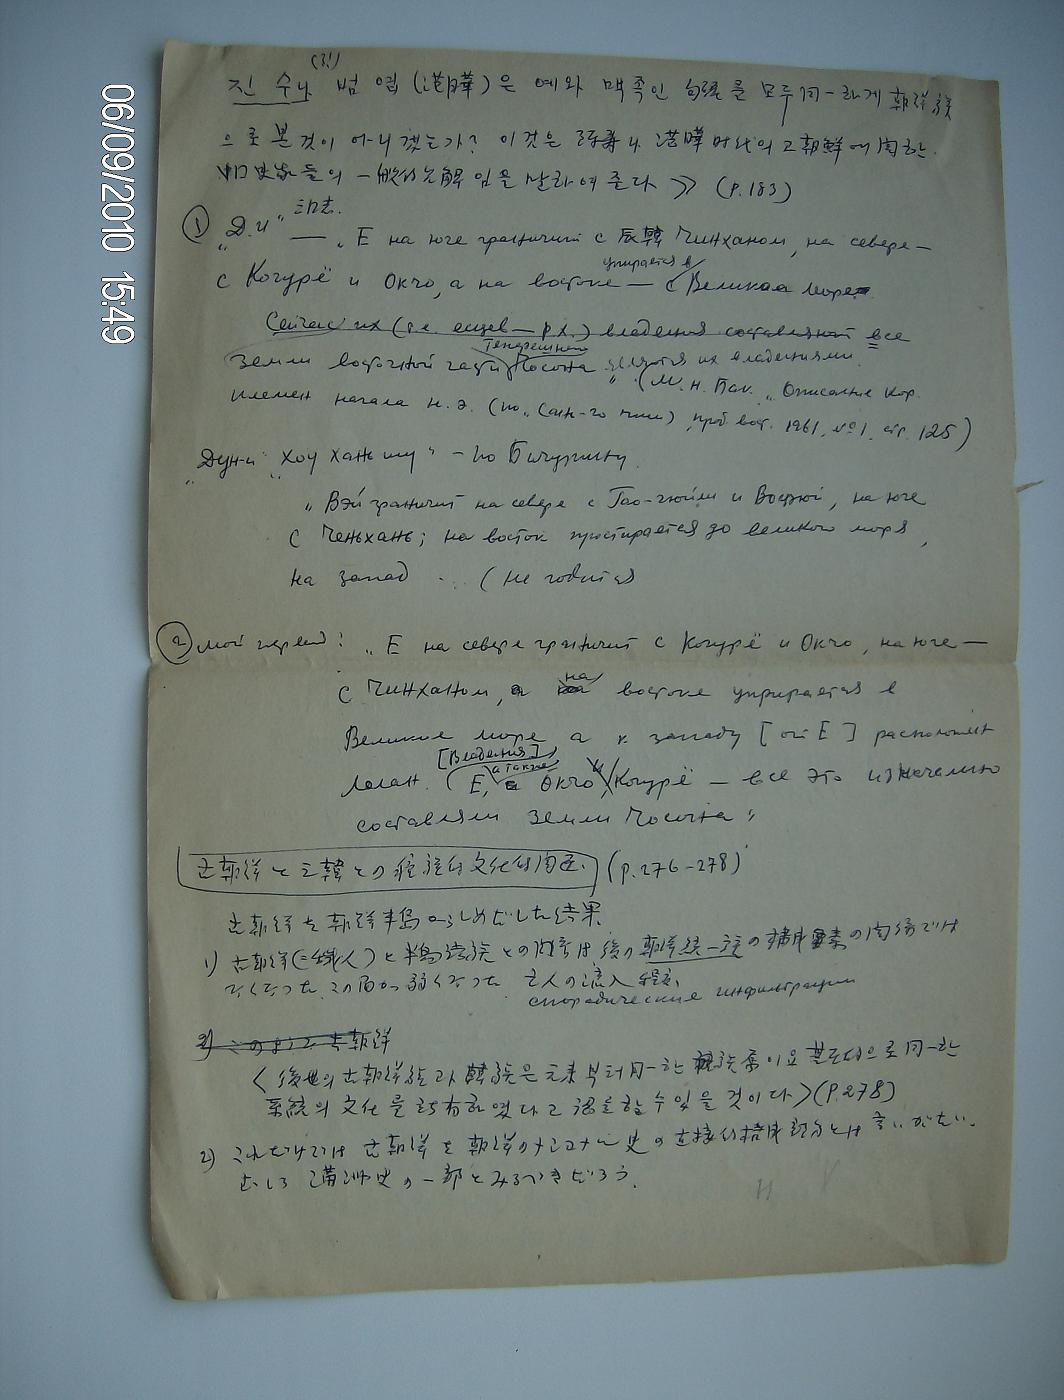 (や)
진수나 범엽 (范曄)은 예와 맥족인 句麗를 모두 同一하게 朝鮮族
으로 본 것이 아니겠는가? 이것은 陳壽나 范曄 時代의 古朝鮮에 関한
中口史家들의 一般的 見解임을 말하여 준다 》 (p.183)
① „Д.И“ 三国志.
— „Е на юге граничит с 辰韓 Чинханом, на севере —
с Когурё и Окчо, а на востоке — упирается в Великое море.
Сейчас их (т.е. емцев — р.х.) владения составляют все
земли восточной части Теперешнего Чосона являются их владениями“ (М.Н. Пак. „Описание кор.
племен начала н.э. (по „Сань-го чжи“), пробл. вост. 1961, № 1, стр. 125)
„Дун-и „Хоу ханьшу“ — по Бичурину
„Вэй граничит на севере с Гао-гюйли и Воцзюй, на юге
с Ченьхань; на восток простирается до великого моря,
на запад ... (не годится
② мой перевод: „Е на севере граничит с Когурё и Окчо, на юге —
с Чинханом, а на востоке упирается в
Великое море а к западу [от Е] расположен
Лолан. [Владения] Е, а также Окчо и Когурё — все это изначально
составляли земли Чосона“
古朝鮮と三韓との種族的文化的関連. (p.276-278)
古朝鮮を朝鮮半島からしめだした結果
1) 古朝鮮(=濊人)と半島諸族との関係は後の朝鮮統一族の構成要素の関係では
なくなった. この面から弱くなった 古人の流入程度,
спорадические инфильтрации
2) このままで古朝鮮
〈後世의 古朝鮮族과 韓族은 元来부터 同一한 種族系이요 基本的으로 同一한
系統의 文化를 所有하였다고 認定할 수 있을 것이다〉(p.278)
2) これだけでは 古朝鮮を朝鮮のナショナル史の直接的構成部分とは言いがたい.
むしろ満洲史の一部とみるべきだろう.
06/09/2010 15:49